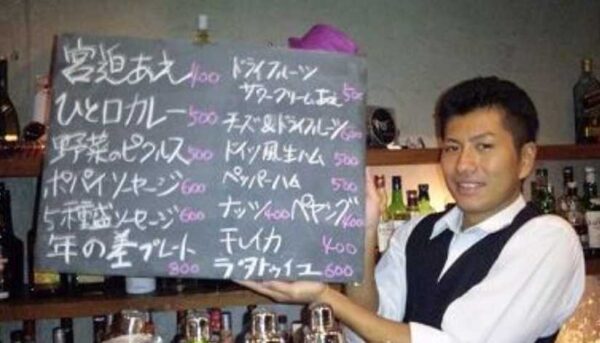 宮迫あえ 400
ひと口カレー 500
野菜のピクルス 500
ポパイソーセージ 600
5種盛ソーセージ 600
年の差プレート 800
ドライフルーツ
サワークリームあえ 500
チーズ&ドライフルーツ 600
ドイツ風生ハム 500
ペッパーハム 500
ナッツ 400 ペヤング 400
干しイカ 400
ラタトゥイユ 600